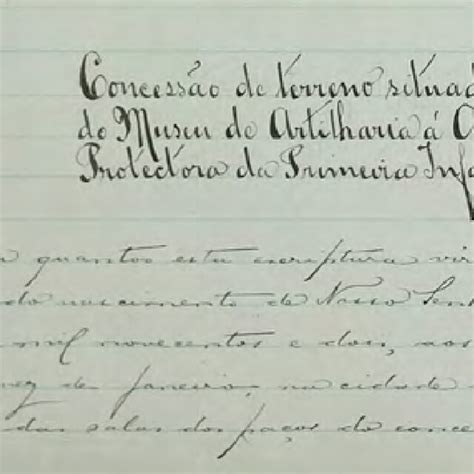 Concessão de terreno situad
do Museu de Artilharia á O
Protectora da Primeira Infa
a quantos esta escriptura vir
do nascimento de Nosso Sen
mil novecentos e dois, aos
mez de Janeiro, na cidade
das salas dos paços do conce